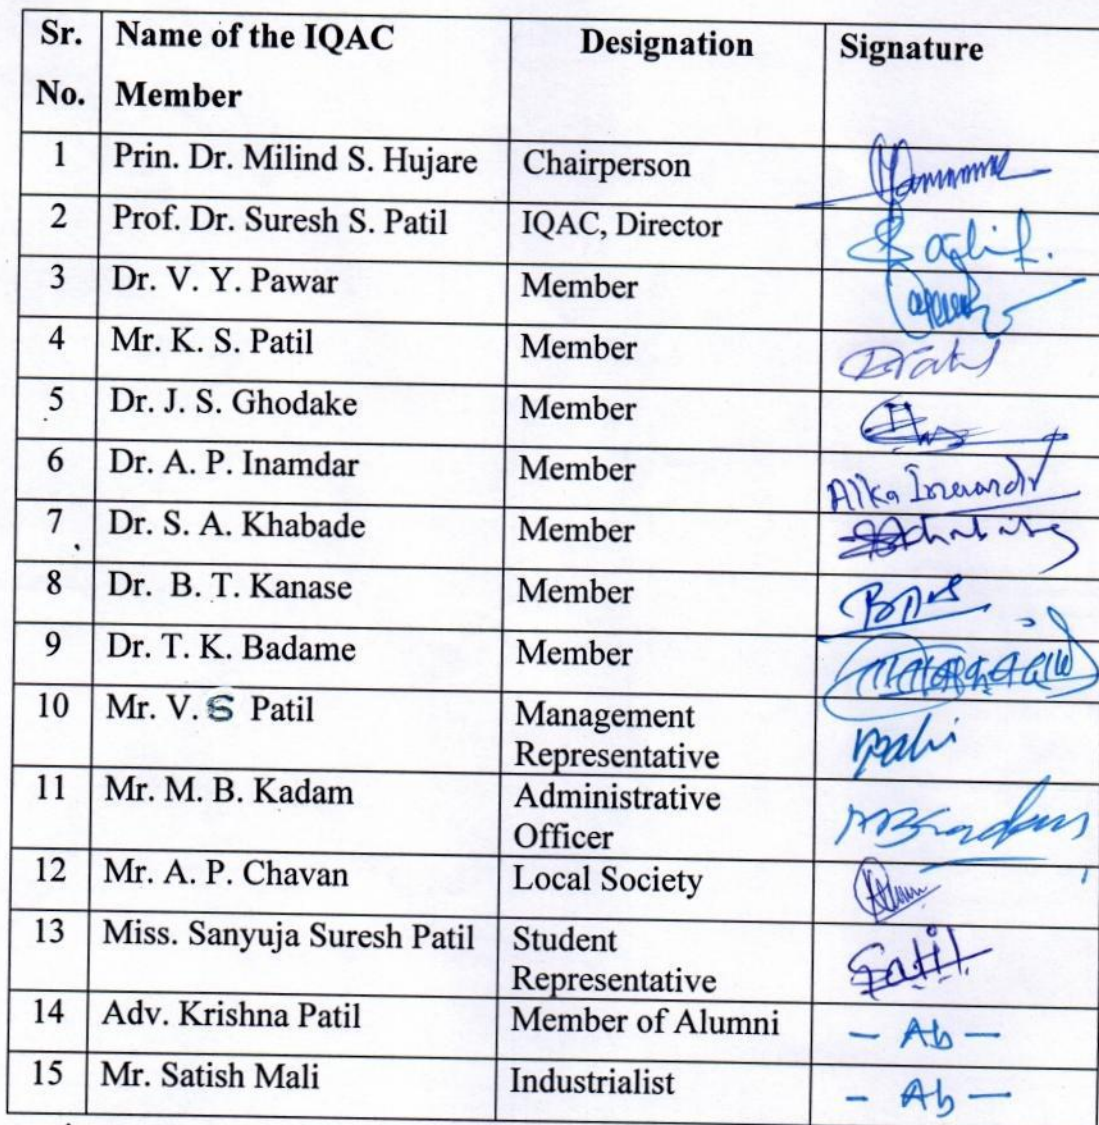 Sr. No. Name of the IQAC Member Designation Signature
1 Prin. Dr. Milind S. Hujare Chairperson
2 Prof. Dr. Suresh S. Patil IQAC, Director
3 Dr. V. Y. Pawar Member
4 Mr. K. S. Patil Member
5 Dr. J. S. Ghodake Member
6 Dr. A. P. Inamdar Member Alka Inamdar
7 Dr. S. A. Khabade Member
8 Dr. B. T. Kanase Member
9 Dr. T. K. Badame Member
10 Mr. V. S Patil Management Representative
11 Mr. M. B. Kadam Administrative Officer
12 Mr. A. P. Chavan Local Society
13 Miss. Sanyuja Suresh Patil Student Representative
14 Adv. Krishna Patil Member of Alumni - Ab -
15 Mr. Satish Mali Industrialist - Ab -